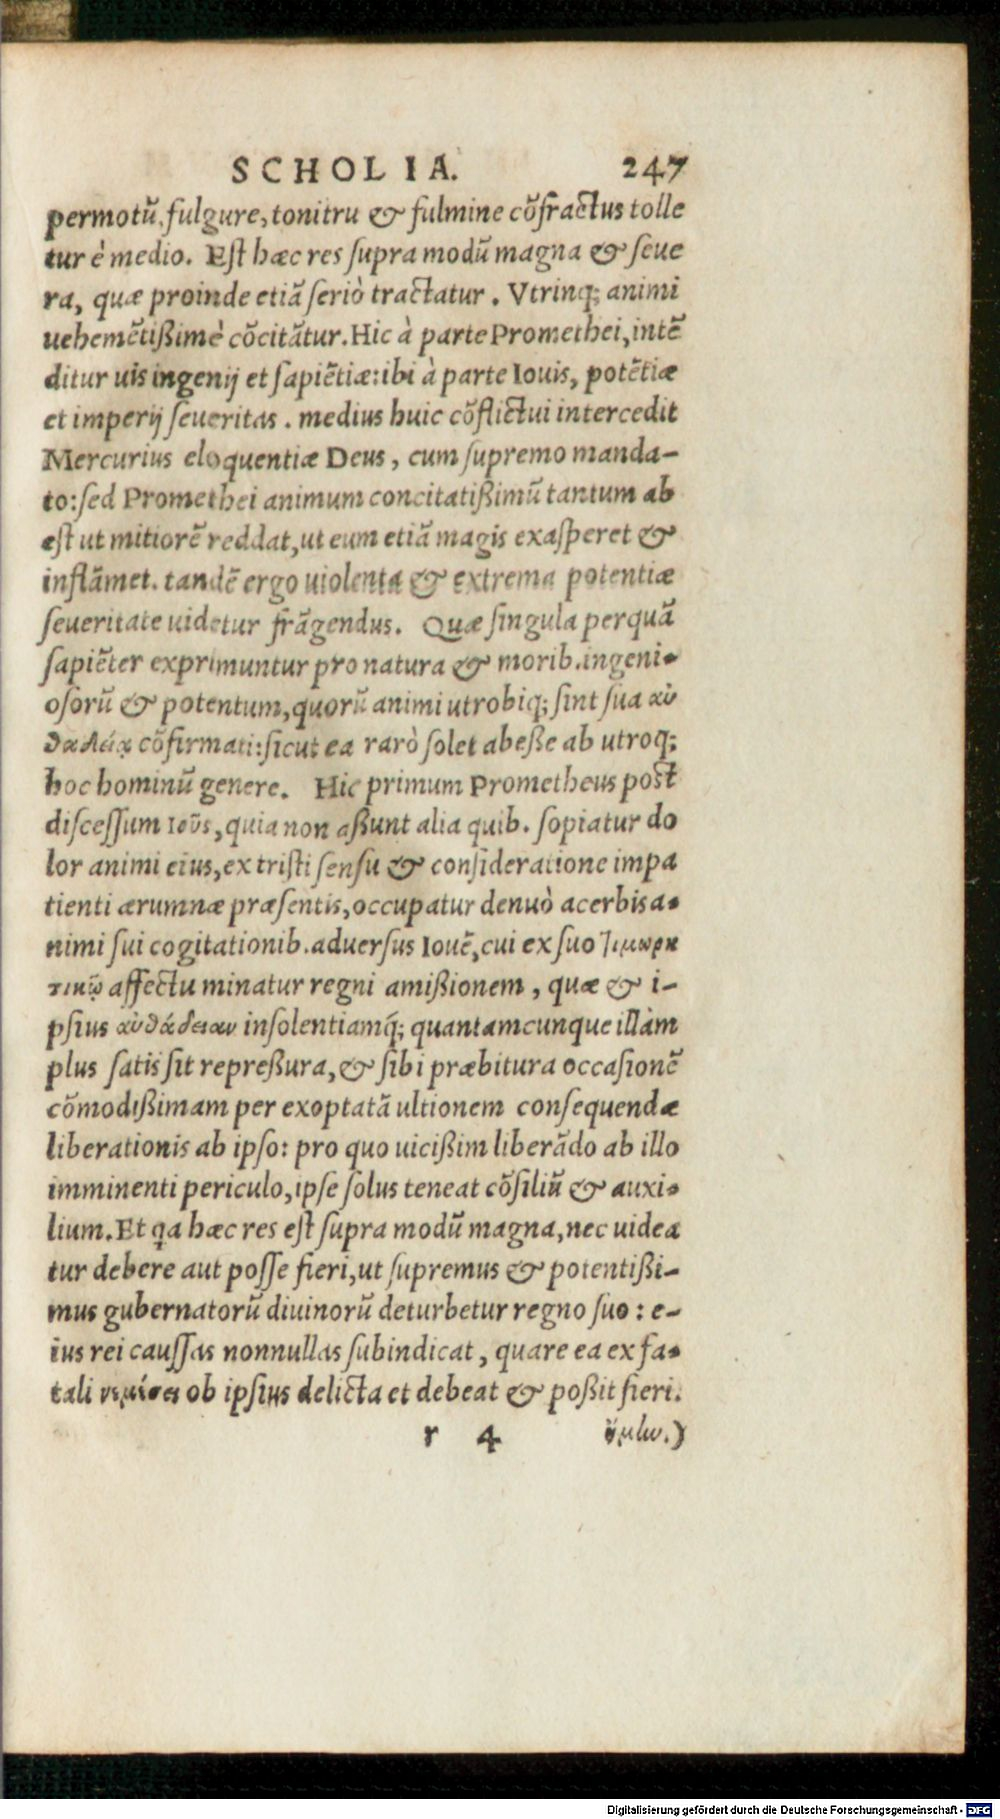 SCHOLIA. 247
permotũ, fulgure, tonitru & fulmine cõfractus tolle
tur è medio. Est hæc res supra modũ magna & seue
ra, quæ proinde etiã seriò tractatur. Vtrinq; animi
uehemẽtißimè cõcitãtur. Hic à parte Promethei, intẽ
ditur uis ingenij et sapiẽtiæ: ibi à parte Iouis, potẽtiæ
et imperij seueritas. medius huic cõflictui intercedit
Mercurius eloquentiæ Deus, cum supremo manda-
to: sed Promethei animum concitatißimũ tantum ab
est ut mitiorẽ reddat, ut eum etiã magis exasperet &
inflãmet. tandẽ ergo uiolenta & extrema potentiæ
seueritate uidetur frãgendus. Quæ singula perquã
sapiẽter exprimuntur pro natura & morib. ingeni-
osorũ & potentum, quorũ animi utrobiq; sint sua αὐ
θαδείᾳ cõfirmati: sicut ea rarò solet abeße ab utroq;
hoc hominũ genere. Hic primum Prometheus post
discessum Ιοῦς, quia non aßunt alia quib. sopiatur do
lor animi eius, ex tristi sensu & consideratione impa
tienti ærumnæ præsentis, occupatur denuò acerbis a-
nimi sui cogitationib. aduersus Iouẽ, cui ex suo τιμωρη
τικῷ affectu minatur regni amißionem, quæ & i-
psius αὐθάδειαν insolentiamq́; quantamcunque illam
plus satis sit repreßura, & sibi præbitura occasionẽ
cõmodißimam per exoptatã ultionem consequendæ
liberationis ab ipso: pro quo uicißim liberãdo ab illo
imminenti periculo, ipse solus teneat cõsiliũ & auxi-
lium. Et qa hæc res est supra modũ magna, nec uidea
tur debere aut posse fieri, ut supremus & potentißi-
mus gubernatorũ diuinorũ deturbetur regno suo: e-
ius rei caussas nonnullas subindicat, quare ea ex fa-
tali νεμέσει ob ipsius delicta et debeat & poßit fieri.
r 4 ὕμιν.)
Digitalisierung gefördert durch die Deutsche Forschungsgemeinschaft - DFG